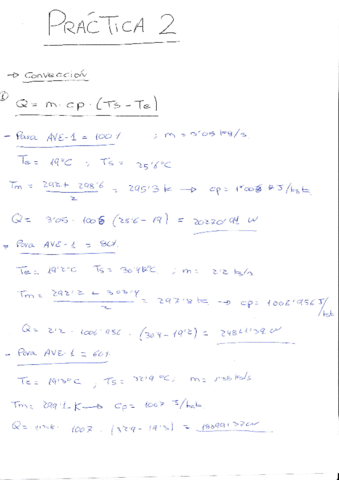 PRÁCTICA 2
→ Convección
① Q = m · cp · (Ts - Te)
- Para AVE-1 = 100% ; m = 3'05 kg/s
Te = 19°C ; Ts = 25'6°C
Tm = 292 + 298'6 / 2 = 295'3 K → cp =
Q = 3'05 · 1006 (25'6 - 19) = W
- Para AVE-1 = 80%
Te = 19'2°C Ts = ; m = 2'2 kg/s
Tm = 292'2 + 303'4 / 2 = 297'8 K → cp = 1006'956 J/
Q = 2'2 · 1006'956 · (30'4 - 19'2) = W
- Para AVE-1 = 60%
Te = 19'3°C , Ts = 32'9°C , m = kg/s
Tm = 299'1 K → cp = 1007 J/
Q = · 1007 · (32'9 - 19'3) = W